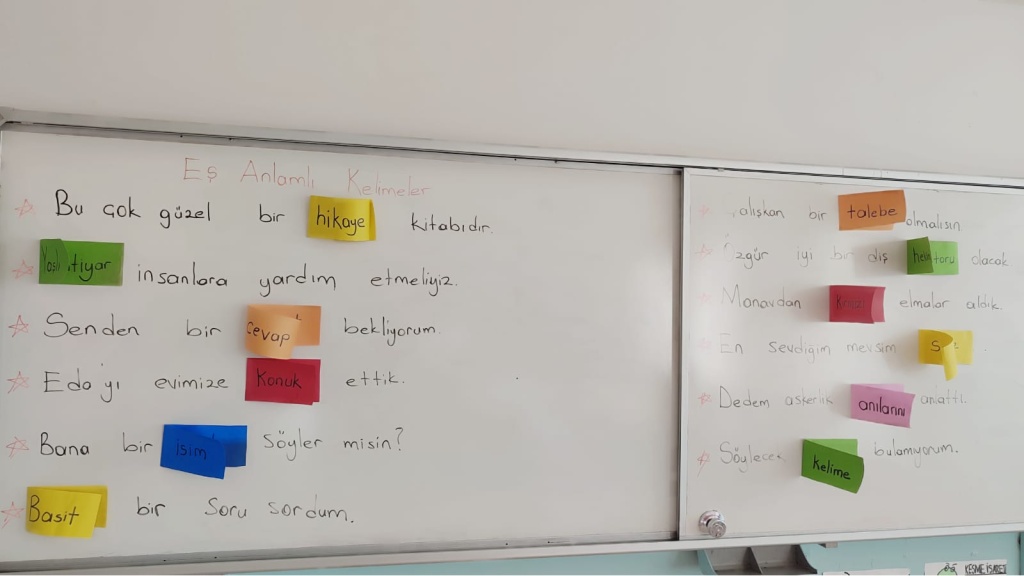 Eş Anlamlı Kelimeler
Bu çok güzel bir hikaye kitabıdır.
insanlara yardım etmeliyiz.
Senden bir cevap bekliyorum.
Eda'yı evimize Konuk ettik.
Bana bir isim söyler misin?
Basit bir soru sordum.
bir talebe olmalısın
iyi bir diş olacak.
Manavdan elmalar aldık.
En sevdiğim mevsim
Dedem askerlik anılarını anlattı.
Kelime bulamıyorum.
KESME İŞARETİ